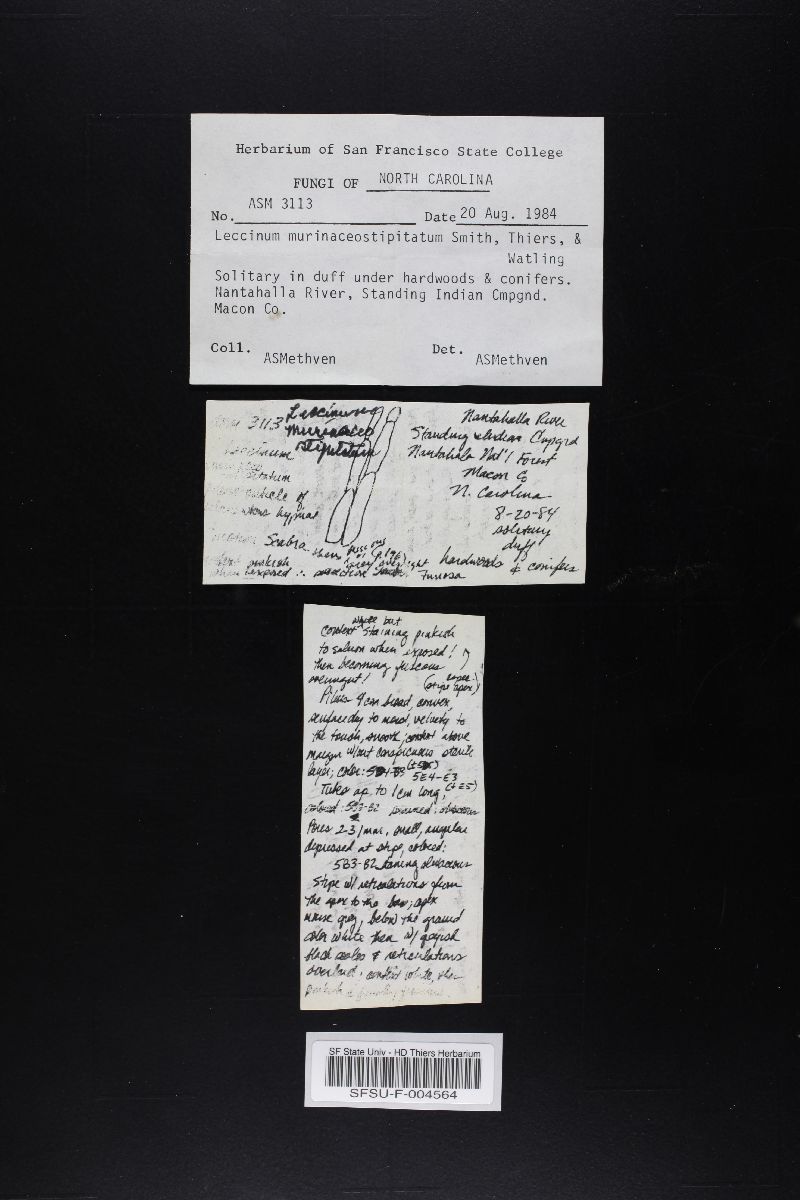 Herbarium of San Francisco State College
FUNGI OF NORTH CAROLINA
No. ASM 3113 Date 20 Aug. 1984
Leccinum murinaceostipitatum Smith, Thiers, &
Watling
Solitary in duff under hardwoods & conifers.
Nantahalla River, Standing Indian Cmpgnd.
Macon Co.
Coll. ASMethven Det. ASMethven
3113 Leccinum
murinaceo
stipitatum
Leccinum
cuticle of
hyphae
Scabra
pinkish
when exposed
Nantahalla River
Standing Indian Cmpgrd
Nantahala Nat'l Forest
Macon Co
N. Carolina
8-20-84
solitary
duff
hardwoods & conifers
Furiosa
white but
context staining pinkish
to salmon when exposed!
then becoming fuscous
overnight!
(stipe apex)
Pileus 9 cm broad, convex,
surface dry to moist, velvety to
the touch, smooth,
margin w/out conspicuous sterile
layer; color: 5E4-E3
Tubes up to 1 cm long,
colored: 5B3-B2
Pores 2-3/mm, small, angular
depressed at stipe, colored:
5B3-B2 staining
Stipe w/ reticulations from
the apex to the base; apex
mouse grey, below the ground
color white then w/ grayish
black scales & reticulations
overlaid, context white, then
SF State Univ - HD Thiers Herbarium
SFSU-F-004564